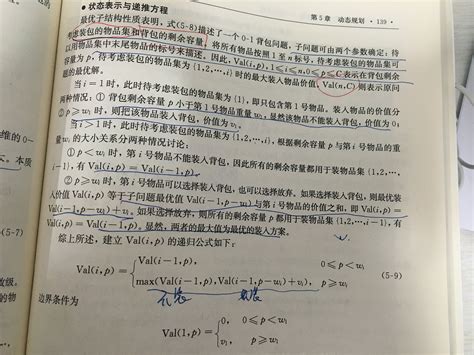 第 5 章 动态规划 · 139 ·
● 状态表示与递推方程
最优子结构性质表明，式(5-8)描述了一个 0-1 背包问题，子问题可由两个参数确定：待
考虑装包的物品集和背包的剩余容量，将所有物品按照 1 至 n 标号，待考虑装包的物品集可
以用物品集中末尾物品的标号来描述。因此，Val(i,p),1≤i≤n,0≤p≤C 表示在背包剩余
容量为 p，待考虑装包的物品集为{1,2,…,i}时的最大装入物品价值，Val(n,C)则表示原问
题的最优解。
当 i=1 时，此时待考虑装包的物品集为{1}，即只包含第 1 号物品，装入物品的价值分
两种情况：① 背包剩余容量 p 小于第 1 号物品重量 w₁，显然该物品不能装入背包，价值为 0；
② p≥w₁ 时，则把该物品装入背包，价值为 v₁。
当 i>1 时，此时待考虑装包的物品集为{1,2,…,i}，根据剩余容量 p 与第 i 号物品的重
量 wᵢ 的大小关系分两种情况讨论：
① p<wᵢ 时，第 i 号物品不能装入背包，因此所有的剩余容量都用于装物品集{1,2,…,
i-1}，有 Val(i,p)=Val(i-1,p)。
② p≥wᵢ 时，第 i 号物品可以选择装入背包，也可以选择放弃，如果选择装入，则最优装
入价值 Val(i,p)等于子问题最优值 Val(i-1,p-wᵢ)与第 i 号物品的价值之和，即 Val(i,p)=
Val(i-1,p-wᵢ)+vᵢ。如果选择放弃，则所有的剩余容量 p 都用于装物品集{1,2,…,i-1}，有
Val(i,p)=Val(i-1,p)，显然，两者的最大值为最优的装入方案。
综上所述，建立 Val(i,p) 的递归公式如下：
Val(i,p)={Val(i-1,p), 0≤p<wᵢ
max(Val(i-1,p),Val(i-1,p-wᵢ)+vᵢ), p≥wᵢ (5-9)
不装
边界条件为
Val(1,p)={0, 0≤p<w₁
v₁, p≥w₁
维的 0-
本质
(5-7)
放级。
的物